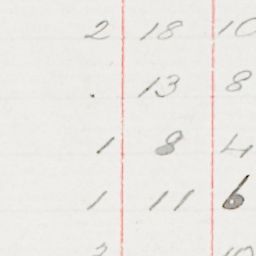 2 18 10
. 13 8
1 8 4
1 11 6
2 10